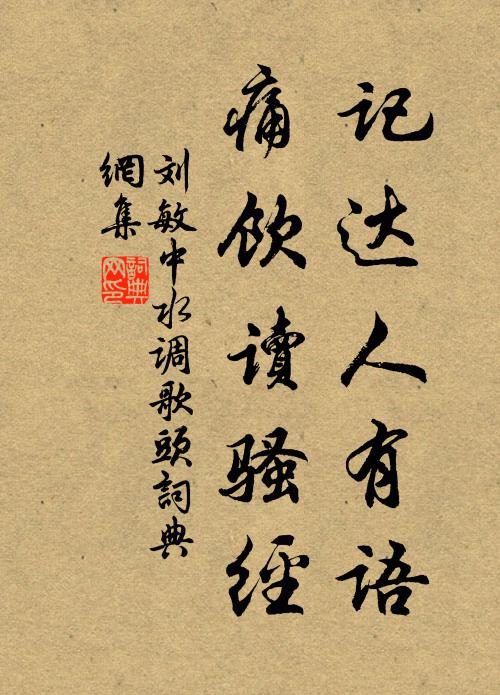 记达人有语
痛饮读骚经
刘敏中水调歌头词典
網集
詞典
网印